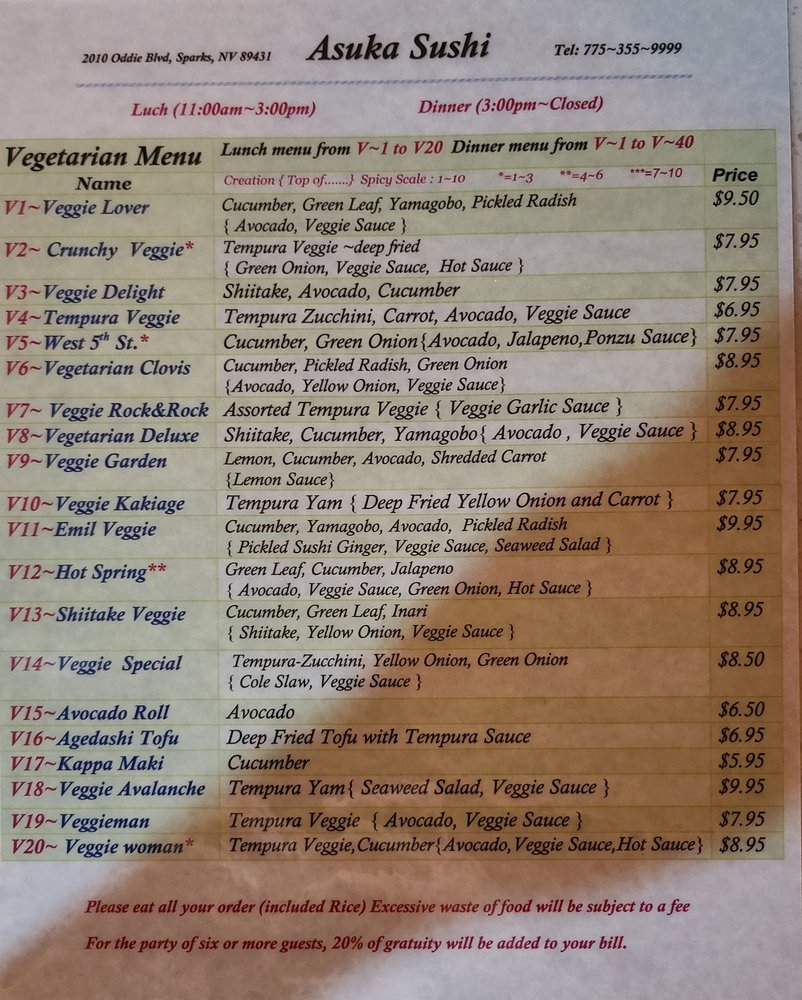 2010 Oddie Blvd, Sparks, NV 89431 Asuka Sushi Tel: 775~355~9999
Luch (11:00am~3:00pm) Dinner (3:00pm~Closed)
Vegetarian Menu Lunch menu from V~1 to V20 Dinner menu from V~1 to V~40
Name Creation { Top of.......} Spicy Scale : 1~10 *=1~3 **=4~6 ***=7~10 Price
V1~Veggie Lover Cucumber, Green Leaf, Yamagobo, Pickled Radish $9.50
{ Avocado, Veggie Sauce }
V2~ Crunchy Veggie* Tempura Veggie ~deep fried $7.95
{ Green Onion, Veggie Sauce, Hot Sauce }
V3~Veggie Delight Shiitake, Avocado, Cucumber $7.95
V4~Tempura Veggie Tempura Zucchini, Carrot, Avocado, Veggie Sauce $6.95
V5~West 5th St.* Cucumber, Green Onion{Avocado, Jalapeno,Ponzu Sauce} $7.95
V6~Vegetarian Clovis Cucumber, Pickled Radish, Green Onion $8.95
{Avocado, Yellow Onion, Veggie Sauce}
V7~ Veggie Rock&Rock Assorted Tempura Veggie { Veggie Garlic Sauce } $7.95
V8~Vegetarian Deluxe Shiitake, Cucumber, Yamagobo{ Avocado , Veggie Sauce } $8.95
V9~Veggie Garden Lemon, Cucumber, Avocado, Shredded Carrot $7.95
{Lemon Sauce}
V10~Veggie Kakiage Tempura Yam { Deep Fried Yellow Onion and Carrot } $7.95
V11~Emil Veggie Cucumber, Yamagobo, Avocado, Pickled Radish $9.95
{ Pickled Sushi Ginger, Veggie Sauce, Seaweed Salad }
V12~Hot Spring** Green Leaf, Cucumber, Jalapeno $8.95
{ Avocado, Veggie Sauce, Green Onion, Hot Sauce }
V13~Shiitake Veggie Cucumber, Green Leaf, Inari $8.95
{ Shiitake, Yellow Onion, Veggie Sauce }
V14~Veggie Special Tempura-Zucchini, Yellow Onion, Green Onion $8.50
{ Cole Slaw, Veggie Sauce }
V15~Avocado Roll Avocado $6.50
V16~Agedashi Tofu Deep Fried Tofu with Tempura Sauce $6.95
V17~Kappa Maki Cucumber $5.95
V18~Veggie Avalanche Tempura Yam{ Seaweed Salad, Veggie Sauce } $9.95
V19~Veggieman Tempura Veggie { Avocado, Veggie Sauce } $7.95
V20~ Veggie woman* Tempura Veggie,Cucumber{Avocado,Veggie Sauce,Hot Sauce} $8.95
Please eat all your order (included Rice) Excessive waste of food will be subject to a fee
For the party of six or more guests, 20% of gratuity will be added to your bill.